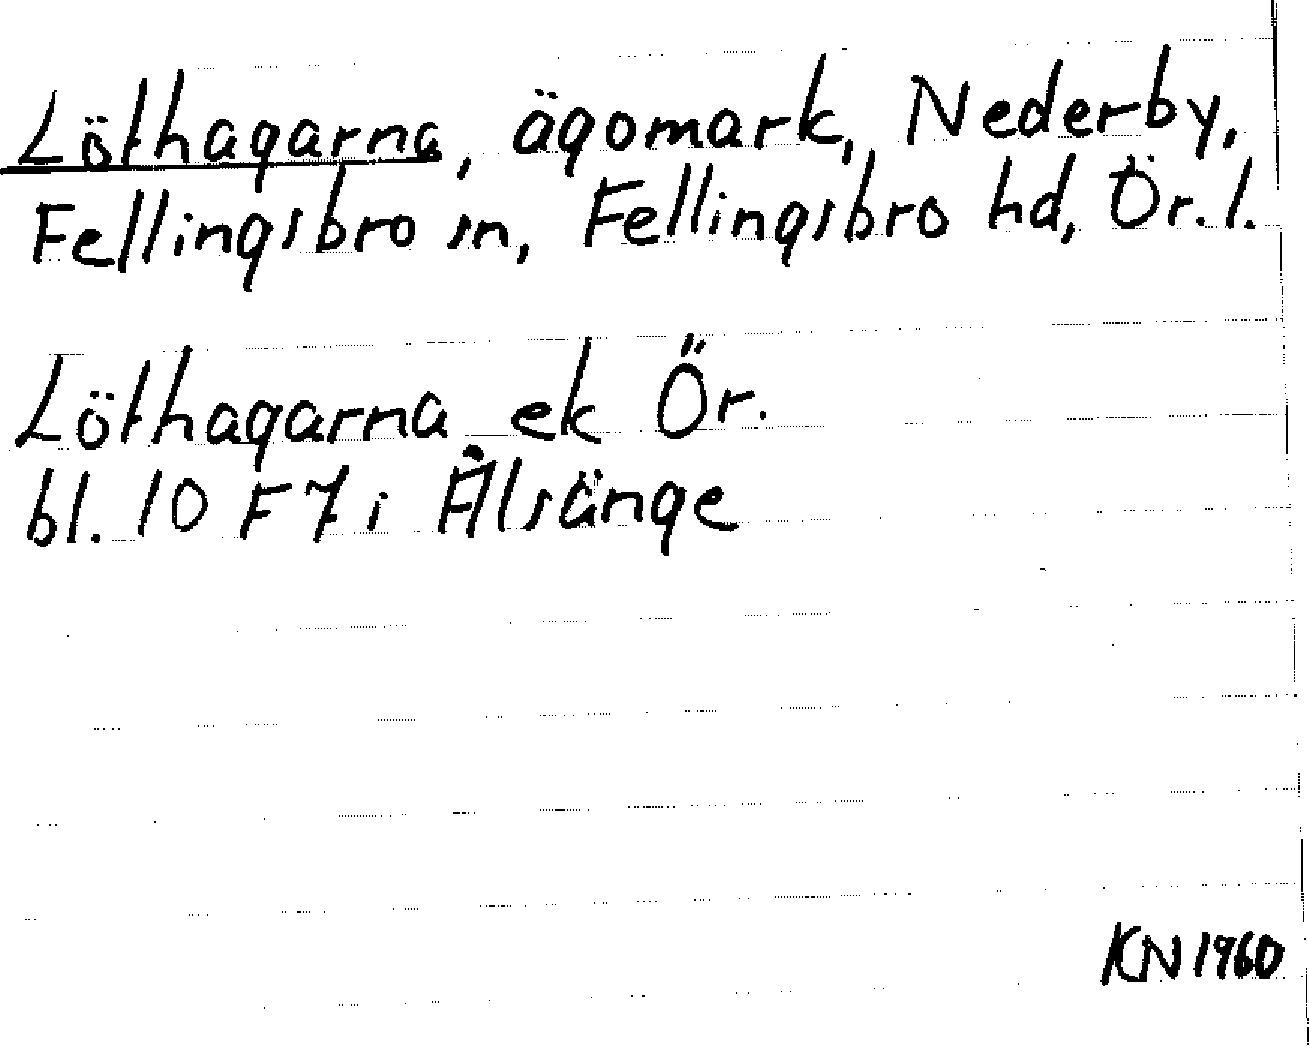 Löthagarna, ägomark, Nederby,
Fellingsbro sn, Fellingsbro hd, Ör. l.
Löthagarna ek Ör.
bl. 10 F 7 i Ålsänge
KN 1960